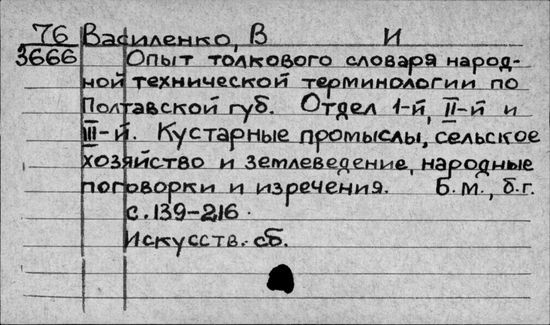 76 Василенко, В И
3666 Опыт толкового словаря народ-
ной технической терминологии по
Полтавской губ. Отдел 1-й, II-й и
III-й. Кустарные промыслы, сельское
хозяйство и землеведение, народные
поговорки и изречения. Б.м., б.г.
с. 139-216.
Искусств. сб.